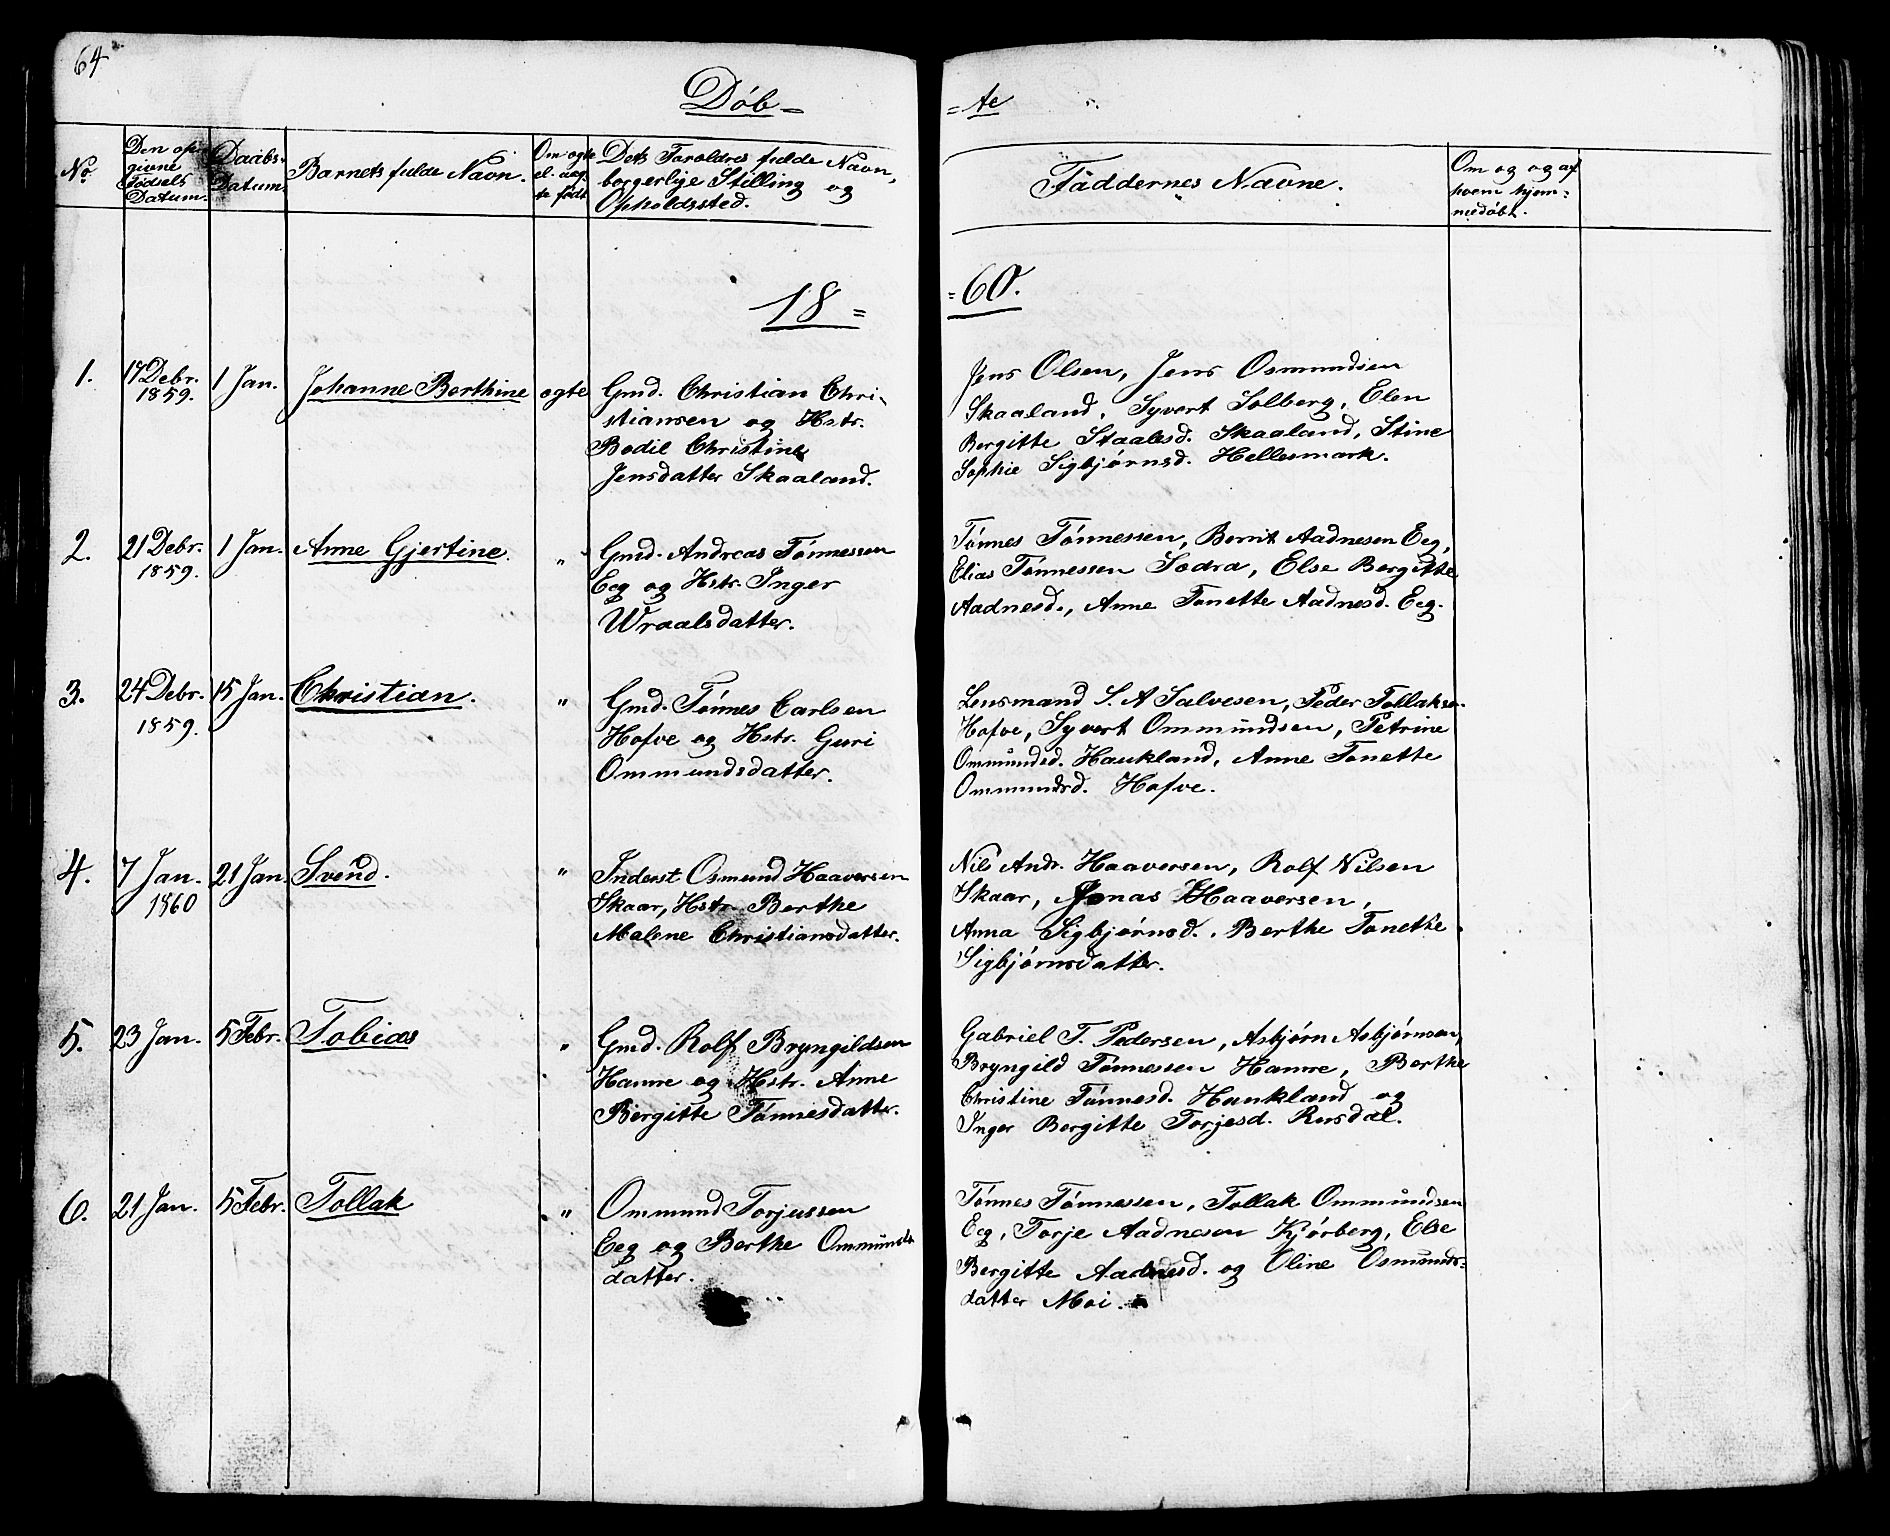 64
Döb= =te
No.
Den op-
givne
Fødsels
Datum.
Daabs-
Datum.
Barnets fulde Navn.
Om ægte
el. uæg-
te født
Dets Forældres fulde Navn,
borgerlige Stilling og
Opholdssted.
Faddernes Navne.
Om og og af
hvem hjem=
medøbt.
18= =60.
1.
17 Debr.
1859.
1 Jan.
Johanne Berthine
ægte
Gmd. Christian Chri-
stiansen og Hstr.
Bodil Christine
Jensdatter Skaaland.
Jens Olsen, Jens Osmundsen
Skaaland, Syvert Solberg, Elen
Bergitte Staalesd. Skaaland, Stine
Sophie Sigbjørnsd. Hellesmark.
2.
21 Debr.
1859.
1 Jan.
Anne Gjertine.
"
Gmd. Andreas Tønnessen
Eeg og Hstr. Inger
Wraalsdatter.
Tønnes Tønnessen, Bernt Aadnesen Eeg,
Elias Tønnessen Sodra, Else Bergitte
Aadnesd., Anne Tonette Aadnesd. Eeg.
3.
24 Debr.
1859.
15 Jan.
Christian.
"
Gmd. Tønnes Carlsen
Hofve og Hstr. Guri
Ommundsdatter.
Lensmand S. A Salvesen, Peder Tollaksen
Hofve, Syvert Ommundsen, Petrine
Ommundsd. Haukland, Anne Tonette
Ommundsd. Hofve.
4.
7 Jan.
1860
21 Jan.
Svend.
"
Inderst Osmund Haaversen
Skaar, Hstr. Berthe
Malene Christiansdatter.
Nils Andr. Haaversen, Rolf Nilsen
Skaar, Jonas Haaversen,
Anna Sigbjørnsd., Berthe Tonethe
Sigbjørnsdatter.
5.
23 Jan.
5 Febr.
Tobias
"
Gmd. Rolf Bryngildsen
Hamre og Hstr. Anne
Bergitte Tønnesdatter.
Gabriel T. Pedersen, Asbjørn Asbjørnsen,
Bryngild Tønnessen Hamre, Berthe
Christine Tønnesd. Haukland og
Inger Bergitte Torjesd. Rusdal.
6.
21 Jan.
5 Febr.
Tollak
"
Ommund Torjussen
Eeg og Berthe Ommunds
datter.
Tønnes Tønnessen, Tollak Ommundsen
Eeg, Torje Aadnesen Kjørberg, Else
Bergitte Aadnesd. og Oline Osmunds-
datter Moi.